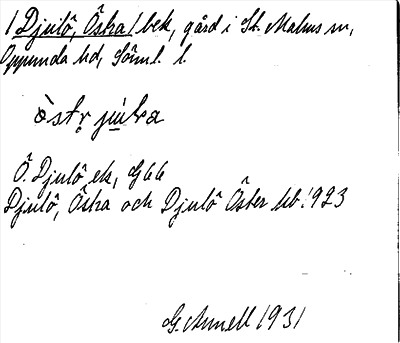 / Djulö, Östra / bek, gård i St. Malms sn,
Oppunda hd, Söml. l.
òstr̥ jụ̀ra
Ö. Djulö ek, G66
Djulö, Östra och Djulö Öster Jb. 1923
G. Annell 1931